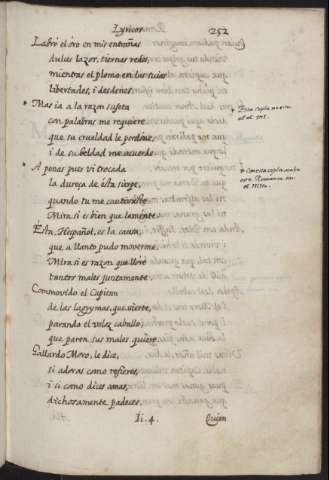 Lyricos 252
Labrè el oro en mis entrañas
dulces lazos, tiernas redes,
mientras el plomo en las suias
libertades, i desdenes.
* Mas ia a la razon sujeta
con palabras me requiere
que su crueldad le perdone,
i de su beldad me acuerde.
* Esta copla no està
el ms.
* A penas pues vi trocada
la dureça de ésta sierpe,
quando tu me cautivaste
Mira si es bien que lamente.
* Con esta copla acaba
este Romance en
el
Ésta, Hespañol, es la causa,
que a llanto pudo moverme,
Mira si es razon que llore
tantos males juntamente.
Conmovido el Capitan
de las lagrymas, que vierte,
parando el veloz caballo,
que paren sus males, quiere.
Gallardo Moro, le dice,
si adoras como refieres,
i si como dices amas,
dichosamente padeces.
Ii. 4. Quien